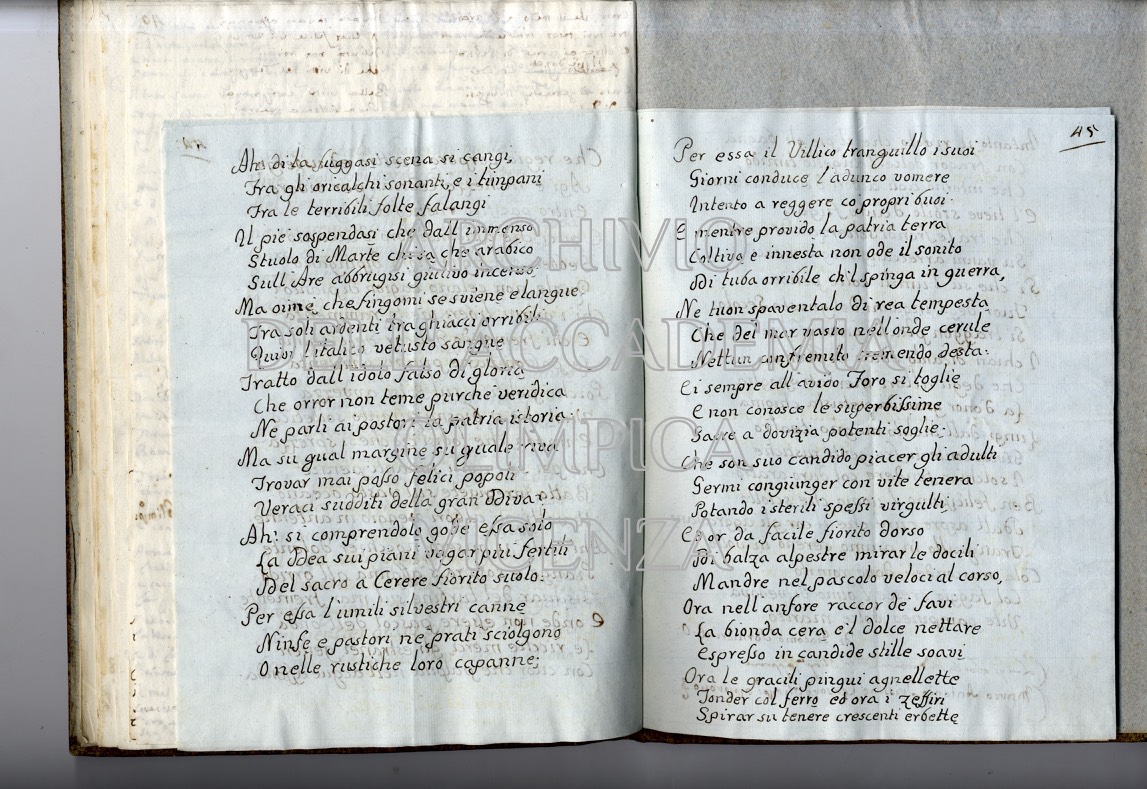 44
Ah! di là fuggasi scena si cangi,
Fra gli oricalchi sonanti, e i timpani
Fra le terribili folte falangi
Il piè sospendasi che dall'immenso
Stuolo di Marte chiusa che arabico
Sull'Are abbrugisi giulivo incenso,
Ma oimè, che fingomi se sviene e langue
Fra soli ardenti fra ghiacci orribili
Quivi l'italico vetusto sangue
Tratto dall'idolo falso di gloria
Che orror non teme purchè veridica
Ne parli ai postori la patria istoria.
Ma su qual margine su quale riva
Trovar mai passo felici popoli
Veraci sudditi della gran Diva?
Ah! si comprendolo gode essa solo
La Dea sui piani vagar più fertili
Del sacro a Cerere fiorito suolo.
Per essa l'umili silvestri canne
Ninfe e pastori ne prati sciolgono
O nelle rustiche loro capanne;
45
Per essa il Villico tranquillo i suoi
Giorni conduce l'adunco vomere
Intento a reggere co' propri buoi.
E mentre provido la patria terra
Coltiva e innesta non ode il sonito
Di tuba orribile ch'l spinga in guerra,
Ne tuon spaventalo di rea tempesta
Che del mar vasto nell'onde cerule
Nettun confremito tremendo desta.
Ei sempre all'avido Foro si toglie
E non conosce le superbissime
Sacre a dovizia potenti soglie.
Che son suo candido piacer gli adulti
Germi congiunger con vite tenera
Potando i sterili spessi virgulti,
E or da facile fiorito dorso
Di balza alpestre mirar le docili
Mandre nel pascolo veloci al corso,
Ora nell'anfore raccor de' favi
La bionda cera e'l dolce nettare
Espresso in candide stille soavi
Ora le gracili pingui agnellette
Tonder col ferro ed ora i zeffiri
Spirar su tenere crescenti erbette
ARCHIVIO
DELL'ACCADEMIA
OLIMPICA
VICENZA